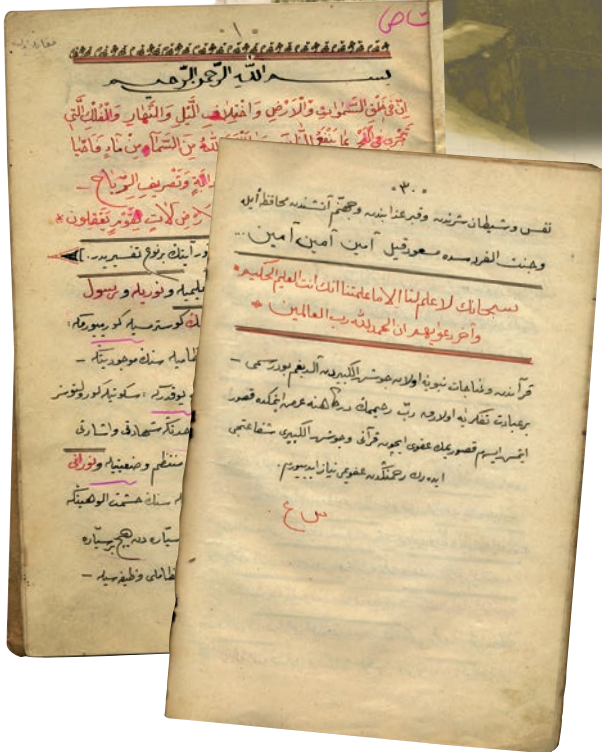 ١
بسم الله الرحمن الرحيم
اِنَّ فِى خَلْقِ السَّمٰوَاتِ وَالْاَرْضِ وَاخْتِلَافِ الَّيْلِ وَالنَّهَارِ وَالْفُلْكِ الَّتِى
تَجْرِى فِى الْبَحْرِ بِمَا يَنْفَعُ النَّاسَ اللّٰهُ مِنَ السَّمَاءِ مِنْ مَاءٍ فَاَحْيَا
دَابَّةٍ وَتَصْرِيفِ الرِّيَاحِ –
لَاٰيَاتٍ لِقَوْمٍ يَعْقِلُونَ *
آيتك برنوع تفسيريدر:
تعليميله ونوريله و رسول
كوسترمسيله كورييورمكه:
سنك موجوديتكه –
يوقدركه: سكوتيله كورولتوسز
وحدتكه شهادتى واشارتى
منتظم وضعيتيله ونورانى
سنك حشمت الوهيتكه
سياره دن هيچ بر سياره
وظيفه سيله –
٣٠
نفس وشيطان شرندن وقبر عذابندن وجهنم آتشندن محافظه ايله
وجنت الفردوسده مسعود قيل آمين آمين آمين ...
سبحانك لا علم لنا الا ما علمتنا انك انت العليم الحكيم *
وآخر دعويهم ان الحمد لله رب العالمين *
قرآندن ومناجات نبويه اولان جوشن الكبيردن آلديغم بو درسمى –
بر عبادت تفكريه اولارق رب رحيمك دركاهنه عرض ايتمكده قصور
ايتمش ايسهم قصوريمك عفوى ايچون قرآنى وجوشن الكبيرى شفاعتجى
ايدەرك رحمتكدن عفويمى نياز ايدييورم.
س ع